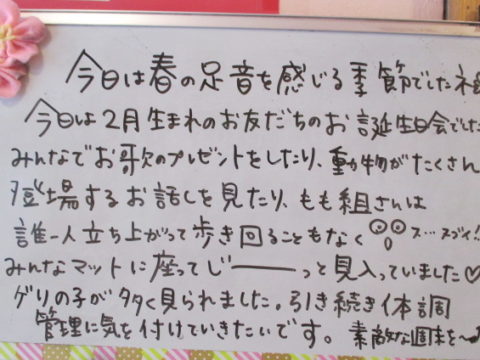 今日は春の足音を感じる季節でしたね
今日は2月生まれのお友だちのお誕生日会でした
みんなでお歌のプレゼントをしたり、動物がたくさん
登場するお話しを見たり、もも組さんは
誰一人立ち上がって歩き回ることもなく ス…スゴイ!!
みんなマットに座ってじーーーっと見入っていました♡
ゲリの子が多く見られました。引き続き体調
管理に気を付けていきたいです。素敵な週末を〜♪